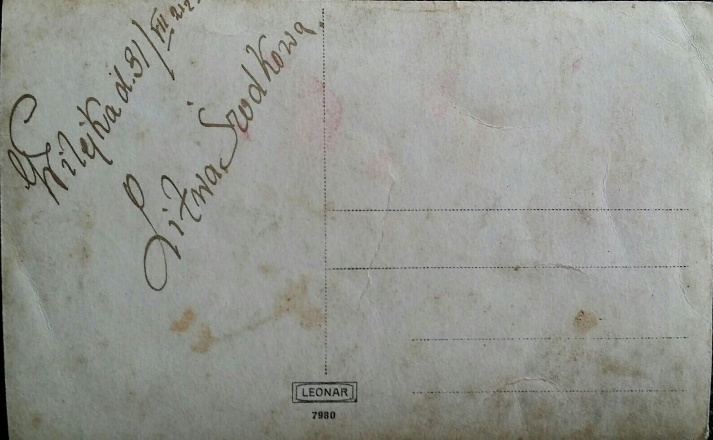 Wilejka d. 31/VII 22
Litwa Środkowa
LEONAR
7980